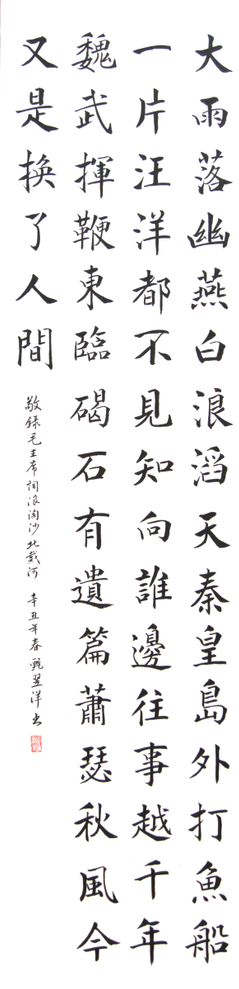 大雨落幽燕白浪滔天秦皇島外打魚船
一片汪洋都不見知向誰邊往事越千年
魏武揮鞭東臨碣石有遺篇蕭瑟秋風今
又是換了人間
敬録毛主席詞浪淘沙北戴河 辛丑年春 甄洋书